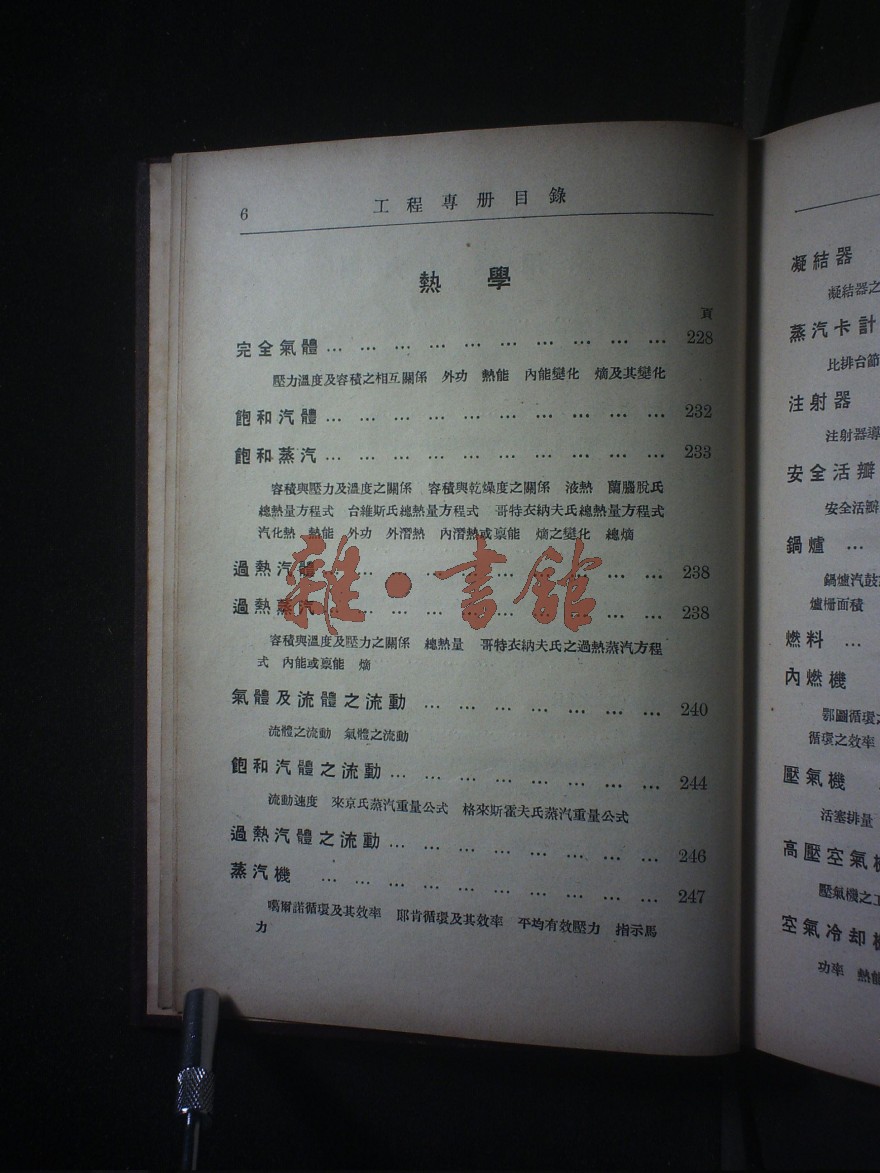 6 工程專册目錄
熱學
頁
完全氣體 … … … … … … … … … … … 228
壓力溫度及容積之相互關係 外功 熱能 內能變化 熵及其變化
飽和汽體 … … … … … … … … … … … 232
飽和蒸汽 … … … … … … … … … … … 233
容積與壓力及溫度之關係 容積與乾燥度之關係 液熱 蘭臘脫氏
總熱量方程式 台維斯氏總熱量方程式 哥特衣納夫氏總熱量方程式
汽化熱 熱能 外功 外潛熱 內潛熱或禀能 熵之變化 總熵
過熱汽體 … … … … … … … … … … … 238
過熱蒸汽 … … … … … … … … … … … 238
容積與溫度及壓力之關係 總熱量 哥特衣納夫氏之過熱蒸汽方程
式 內能或禀能 熵
氣體及流體之流動 … … … … … … … … 240
流體之流動 氣體之流動
飽和汽體之流動 … … … … … … … … 244
流動速度 來京氏蒸汽重量公式 格來斯霍夫氏蒸汽重量公式
過熱汽體之流動 … … … … … … … … 246
蒸汽機 … … … … … … … … … … … 247
噶爾諾循環及其效率 郎肯循環及其效率 平均有效壓力 指示馬
力
雜·書館
凝結器
凝結器之
蒸汽卡計
比排台節
注射器
注射器導
安全活瓣
安全活瓣
鍋爐 …
鍋爐汽鼓
爐柵面積
燃料 …
內燃機
鄂圖循環之
循環之效率
壓氣機
活塞排量
高壓空氣機
壓氣機之工
空氣冷却機
功率 熱能